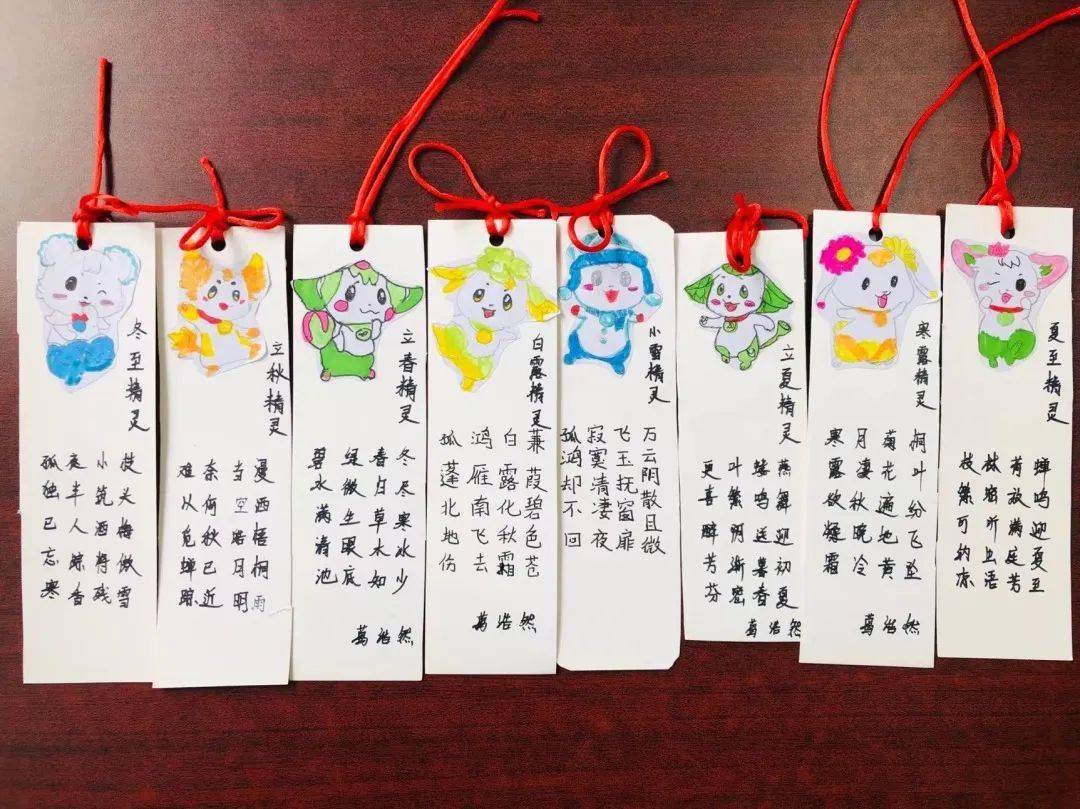 冬至精灵
枝头梅傲雪
小筑酒将残
夜半人踪香
孤独已忘寒
立秋精灵
漫西梧桐雨
当空皓月明
奈何秋已近
难从觅蝉踪
立春精灵
冬尽寒冰少
春归草木如
绿微生眼底
碧水满清池
葛浩然
白露精灵
蒹葭碧色苍
白露化秋霜
鸿雁南飞去
孤蓬北地伤
葛浩然
小雪精灵
万云阴散且微
飞玉抚窗扉
寂寞清凄夜
孤鸿却不回
立夏精灵
燕舞迎初夏
蜂鸣送暮春
叶繁阴渐密
更喜醉芳芬
葛浩然
寒露精灵
桐叶纷飞坠
菊花遍地黄
月凄秋晚冷
寒露欲凝霜
葛浩然
夏至精灵
蝉鸣迎夏至
荷放满庭芳
林宿听虫语
枝繁可纳凉